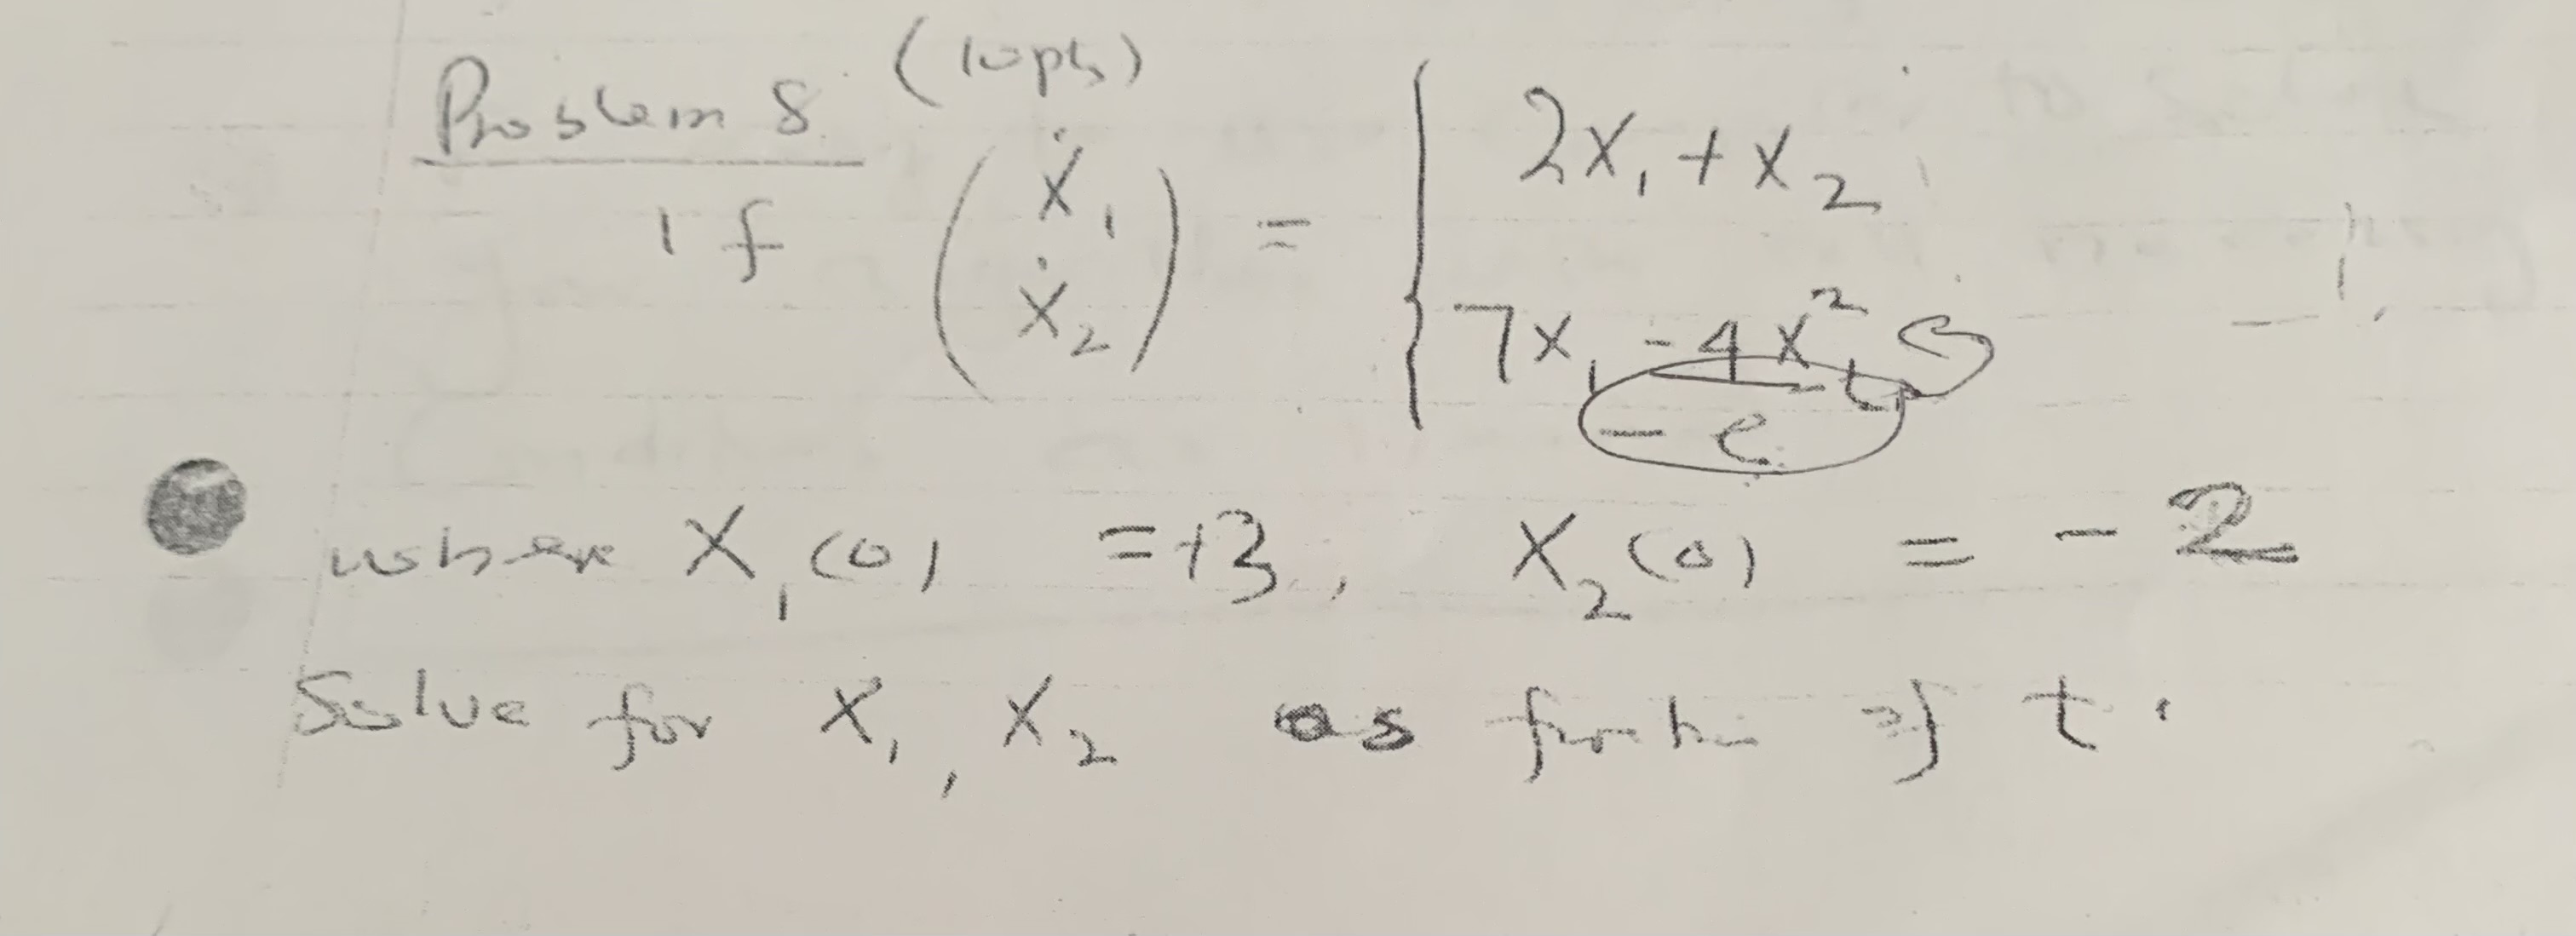 Problem 8 (10pts)
If (ẋ₁ ẋ₂) = { 2x₁ + x₂
7x₁ - 4x²
- e^-t
where X₁(0) = +3, X₂(0) = - 2
Solve for X₁, X₂ as of t.